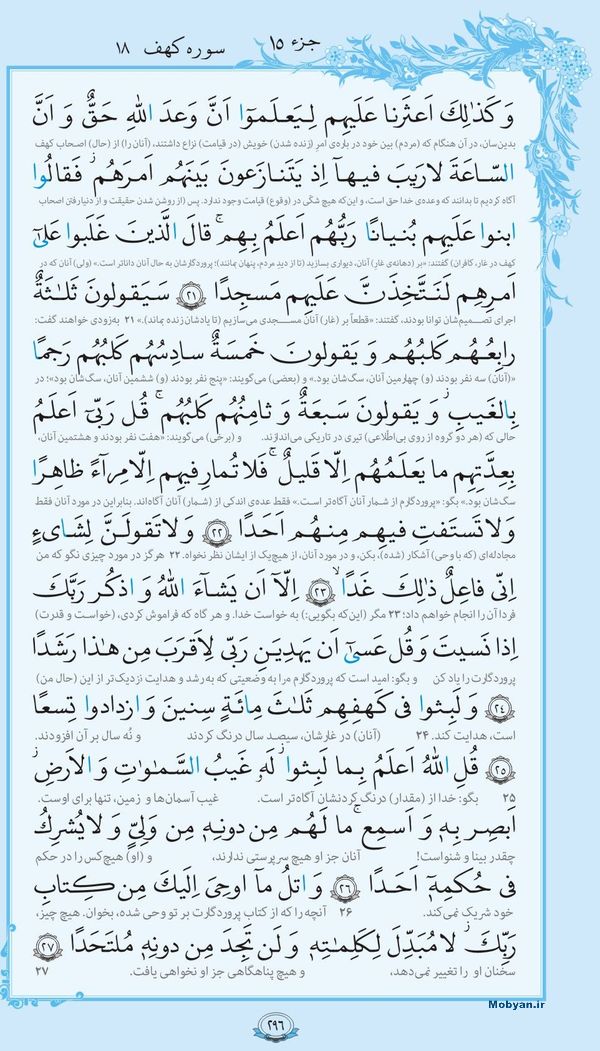 جزء ۱۵ سوره کهف ۱۸
وَ کَذٰلِکَ اَعثَرنا عَلَیهِم لِیَعلَموٓا اَنَّ وَعدَ اللهِ حَقٌّ وَ اَنَّ
بدین‌سان، در آن هنگام که (مردم) بین خود در باره‌ی امرِ (زنده شدن) خویش (در قیامت) نزاع داشتند، (آنان را) از (حال) اصحاب کهف
السّاعَةَ لارَیبَ فیهآ اِذ یَتَنازَعونَ بَینَهُم اَمرَهُم ۖ فَقالُوا
آگاه کردیم تا بدانند که وعده‌ی خدا حق است، و این‌که هیچ شکّی در (وقوع) قیامت وجود ندارد. پس (از روشن شدن حقیقت و از دنیا رفتن اصحاب
ابنوا عَلَیهِم بُنیانًا ۖ رَبُّهُم اَعلَمُ بِهِم ۚ قالَ الَّذینَ غَلَبوا عَلىٰٓ
کهف در غار، کافران) گفتند: «بر (دهانه‌ی غارِ) آنان، دیواری بسازید (تا از دید مردم، پنهان بمانند)؛ پروردگارشان به حال آنان داناتر است.» (ولی) آنان که در
اَمرِهِم لَنَتَّخِذَنَّ عَلَیهِم مَسجِدًا ﴿۲۱﴾ سَیَقولونَ ثَلٰثَةٌ
اجرای تصمیم‌شان توانا بودند، گفتند: «قطعاً بر (غار) آنان مسجدی می‌سازیم (تا یادشان زنده بماند).» ۲۱ به‌زودی خواهند گفت:
رابِعُهُم کَلبُهُم وَ یَقولونَ خَمسَةٌ سادِسُهُم کَلبُهُم رَجمًا
«(آنان) سه نفر بودند (و) چهارمین آنان، سگ‌شان بود.» و (بعضی) می‌گویند: «پنج نفر بودند (و) ششمین آنان، سگ‌شان بود»؛ در
بِالغَیبِ ۖ وَ یَقولونَ سَبعَةٌ وَ ثامِنُهُم کَلبُهُم ۚ قُل رَبّی اَعلَمُ
حالی که (هر دو گروه از روی بی‌اطّلاعی) تیری در تاریکی می‌اندازند. و (برخی) می‌گویند: «هفت نفر بودند و هشتمین آنان،
بِعِدَّتِهِم ما یَعلَمُهُم اِلّا قَلیلٌ ۗ فَلا تُمارِ فیهِم اِلّا مِرآءً ظاهِرًا
سگ‌شان بود.» بگو: «پروردگارم از شمار آنان آگاه‌تر است.» فقط عده‌ی اندکی از (شمار) آنان آگاه‌اند. بنابراین در مورد آنان فقط
وَ لا تَستَفتِ فیهِم مِنهُم اَحَدًا ﴿۲۲﴾ وَ لا تَقولَنَّ لِشَایءٍ
مجادله‌ای (که با وحی) آشکار (شده)، بکن، و در مورد آنان، از هیچ‌یک از ایشان نظر نخواه. ۲۲ هرگز در مورد چیزی نگو که من
اِنّی فاعِلٌ ذٰلِکَ غَدًا ﴿۲۳﴾ اِلّآ اَن یَشآءَ اللهُ ۚ وَ اذکُر رَبَّکَ
فردا آن را انجام خواهم داد؛ ۲۳ مگر (این‌که بگویی:) به خواست خدا. و هر گاه که فراموش کردی، (خواست و قدرت)
اِذا نَسیتَ وَ قُل عَسىٰٓ اَن یَهدِیَنِ رَبّی لِاَقرَبَ مِن هٰذا رَشَدًا
پروردگارت را یاد کن و بگو: امید است که پروردگارم مرا به وضعیتی که به رشد و هدایت نزدیک‌تر از این (حال من)
﴿۲۴﴾ وَ لَبِثوا فی کَهفِهِم ثَلٰثَ مِائَةٍ سِنینَ وَ ازدادوا تِسعًا
است، هدایت کند. ۲۴ (آنان) در غارشان، سیصد سال درنگ کردند و نُه سال بر آن افزودند.
﴿۲۵﴾ قُلِ اللهُ اَعلَمُ بِما لَبِثوا ۖ لَهٗ غَیبُ السَّمٰوٰتِ وَ الاَرضِ ۖ
۲۵ بگو: خدا از (مقدار) درنگ کردنشان آگاه‌تر است. غیب آسمان‌ها و زمین، تنها برای اوست.
اَبصِر بِهٖ وَ اَسمِع ۚ ما لَهُم مِن دونِهٖ مِن وَلِیٍّ وَ لا یُشرِکُ
چقدر بینا و شنواست! آنان جز او هیچ سرپرستی ندارند، و (او) هیچ‌کس را در حکم
فی حُکمِهٖٓ اَحَدًا ﴿۲۶﴾ وَ اتلُ مآ اوحِیَ اِلَیکَ مِن کِتابِ
خود شریک نمی‌کند. ۲۶ آنچه را که از کتاب پروردگارت بر تو وحی شده، بخوان. هیچ چیز،
رَبِّکَ ۖ لا مُبَدِّلَ لِکَلِمٰتِهٖ وَ لَن تَجِدَ مِن دونِهٖ مُلتَحَدًا ﴿۲۷﴾
سخنان او را تغییر نمی‌دهد، و هیچ پناهگاهی جز او نخواهی یافت. ۲۷
Mobyan.ir
۲۹۶